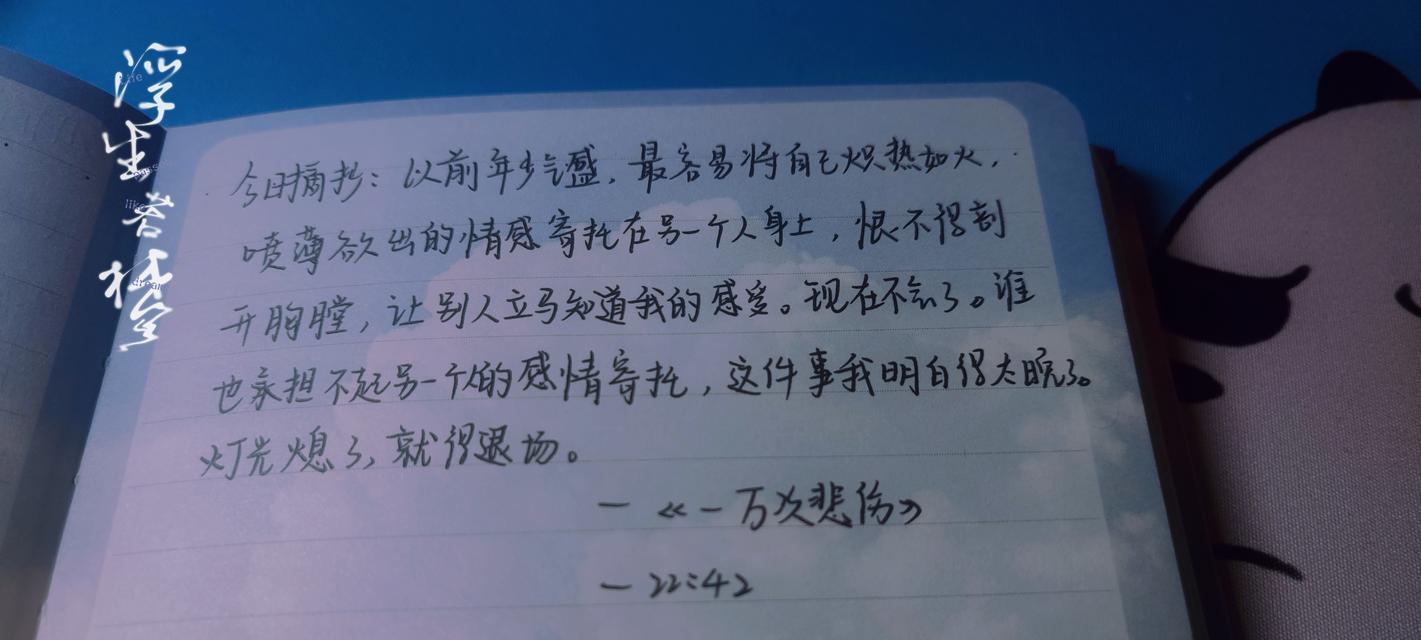 浮生若梦
今日摘抄：以前年少气盛，最容易将自己炽热如火，
喷薄欲出的情感寄托在另一个人身上，恨不得剖
开胸膛，让别人立马知道我的感受。现在不会了。谁
也承担不起另一个人的感情寄托，这件事我明白得太晚了。
灯光熄了，就得退场。
—《一万次悲伤》
—22:42